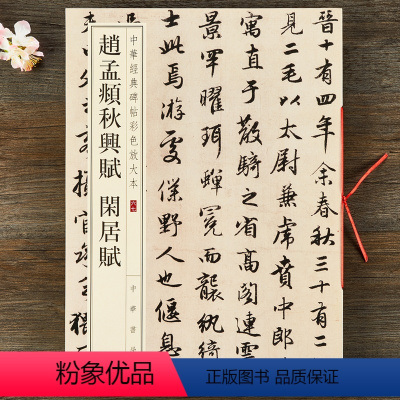 晉十有四年余春秋三十有二
見二毛以太尉兼虎賁中郎
寓直于散騎之省高閣連雲
景罕曜珥蟬冕而襲紈綺
士此焉游處僕野人也偃息
中華經典碑帖彩色放大本
趙孟頫秋興賦 閑居賦
中華書局
粉象优品